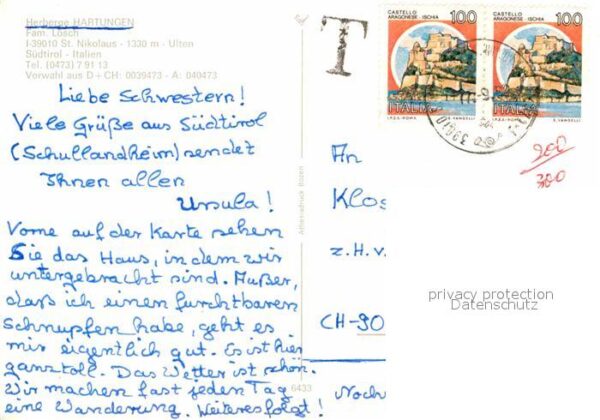 Herberge HARTUNGEN
Fam. Lösch
I-39010 St. Nikolaus - 1330 m - Ulten
Südtirol - Italien
Tel. (0473) 7 91 13
Vorwahl aus D + CH: 0039473 - A: 040473
Liebe Schwestern!
Viele Grüße aus Südtirol
(Schullandheim) sendet
Ihnen allen
Ursula!
Vorne auf der Karte sehen
Sie das Haus, in dem wir
untergebracht sind. Außer,
daß ich einen furchtbaren
Schnupfen habe, geht es
mir eigentlich gut. Es ist hier
ganz toll. Das Wetter ist schön.
Wir machen fast jeden Tag
eine Wanderung. Weiteres folgt!
Athesiadruck Bozen
6433
T
CASTELLO
ARAGONESE - ISCHIA 100
ITALIA
I.P.Z.S. - ROMA E. VANGELLI
CASTELLO
ARAGONESE - ISCHIA 100
ITALIA
I.P.Z.S. - ROMA E. VANGELLI
39010
200
300
An
Klos
z.H.v.
privacy protection
Datenschutz
CH-90
Noch